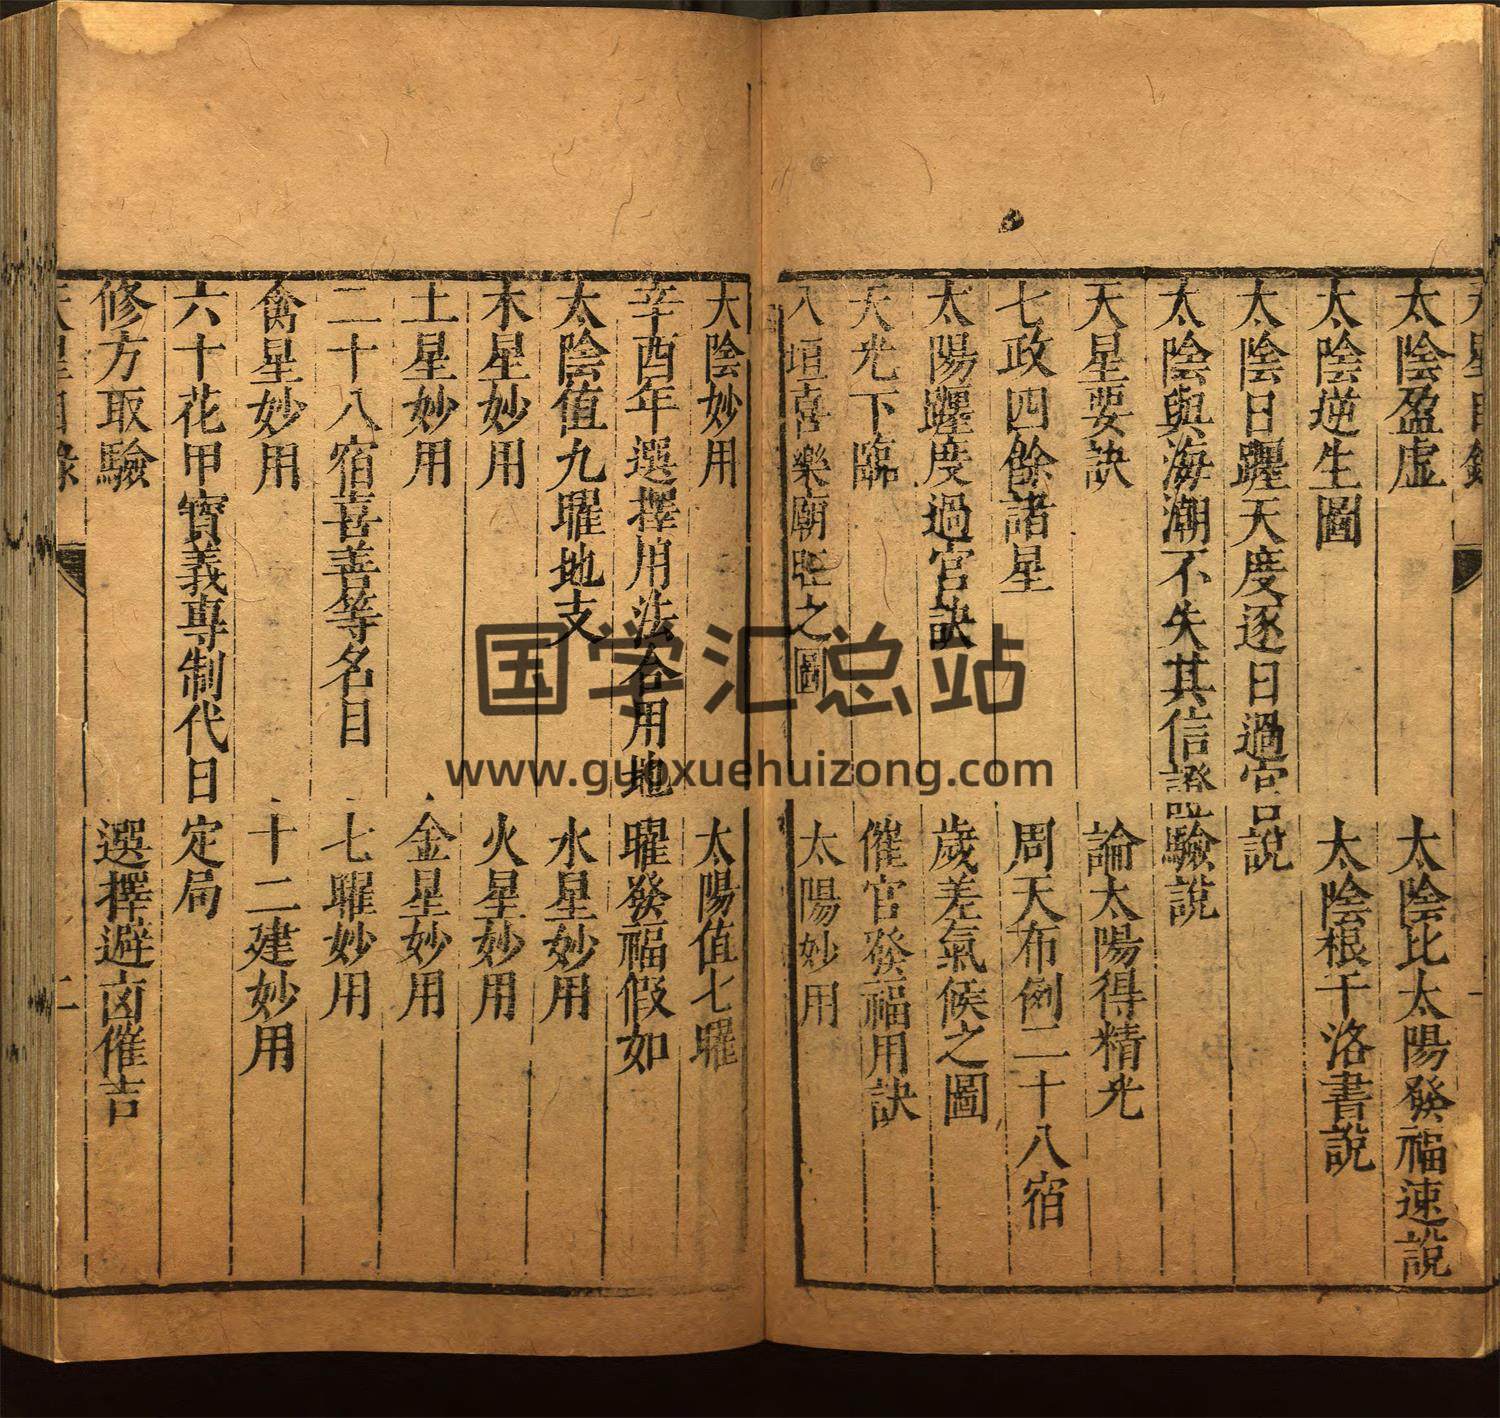 天星目錄
太陰盈虛 太陰比太陽發福速說
太陰逆生圖 太陰根于洛書說
太陰日躔天度逐日過宮說
太陰與海潮不失其信證驗說
天星要訣 論太陽得精光
七政四餘諸星 周天布例二十八宿
太陽躔度過宮訣 歲差氣候之圖
天光下臨 催官發福用訣
八垣喜樂廟旺之圖 太陽妙用
太陰妙用 太陽值七曜
辛酉年選擇用法合用地曜發福假如
太陰值九曜地支 水星妙用
木星妙用 火星妙用
土星妙用 金星妙用
二十八宿喜善等名目 七曜妙用
禽星妙用 十二建妙用
六十花甲寶義專制代日定局
修方取驗 選擇避凶催吉
天星目錄 二
国学汇总站
www.guoxuehuizong.com